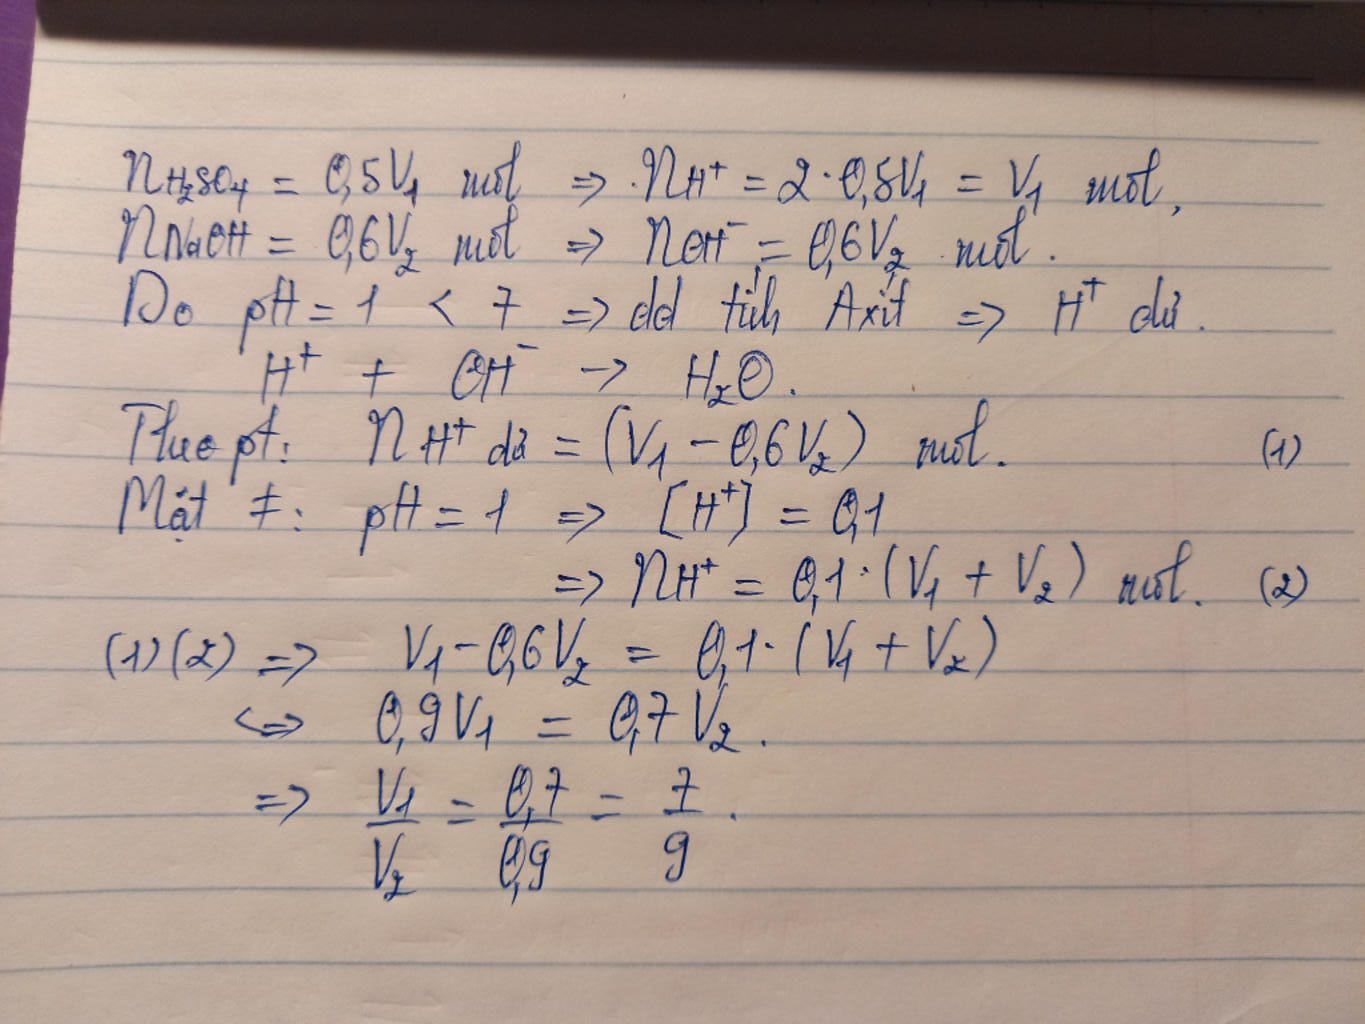 nH2SO4 = 0,5V1 mol => nH+ = 2.0,5V1 = V1 mol,
nNaOH = 0,6V2 mol => nOH- = 0,6V2 mol.
Do pH = 1 < 7 => dd tính Axít => H+ dư.
H+ + OH- -> H2O.
Theo pt: nH+ dư = (V1 - 0,6V2) mol. (1)
Mặt ≠: pH = 1 => [H+] = 0,1
=> nH+ = 0,1.(V1 + V2) mol. (2)
(1)(2) => V1 - 0,6V2 = 0,1.(V1 + V2)
<=> 0,9V1 = 0,7V2.
=> V1/V2 = 0,7/0,9 = 7/9.